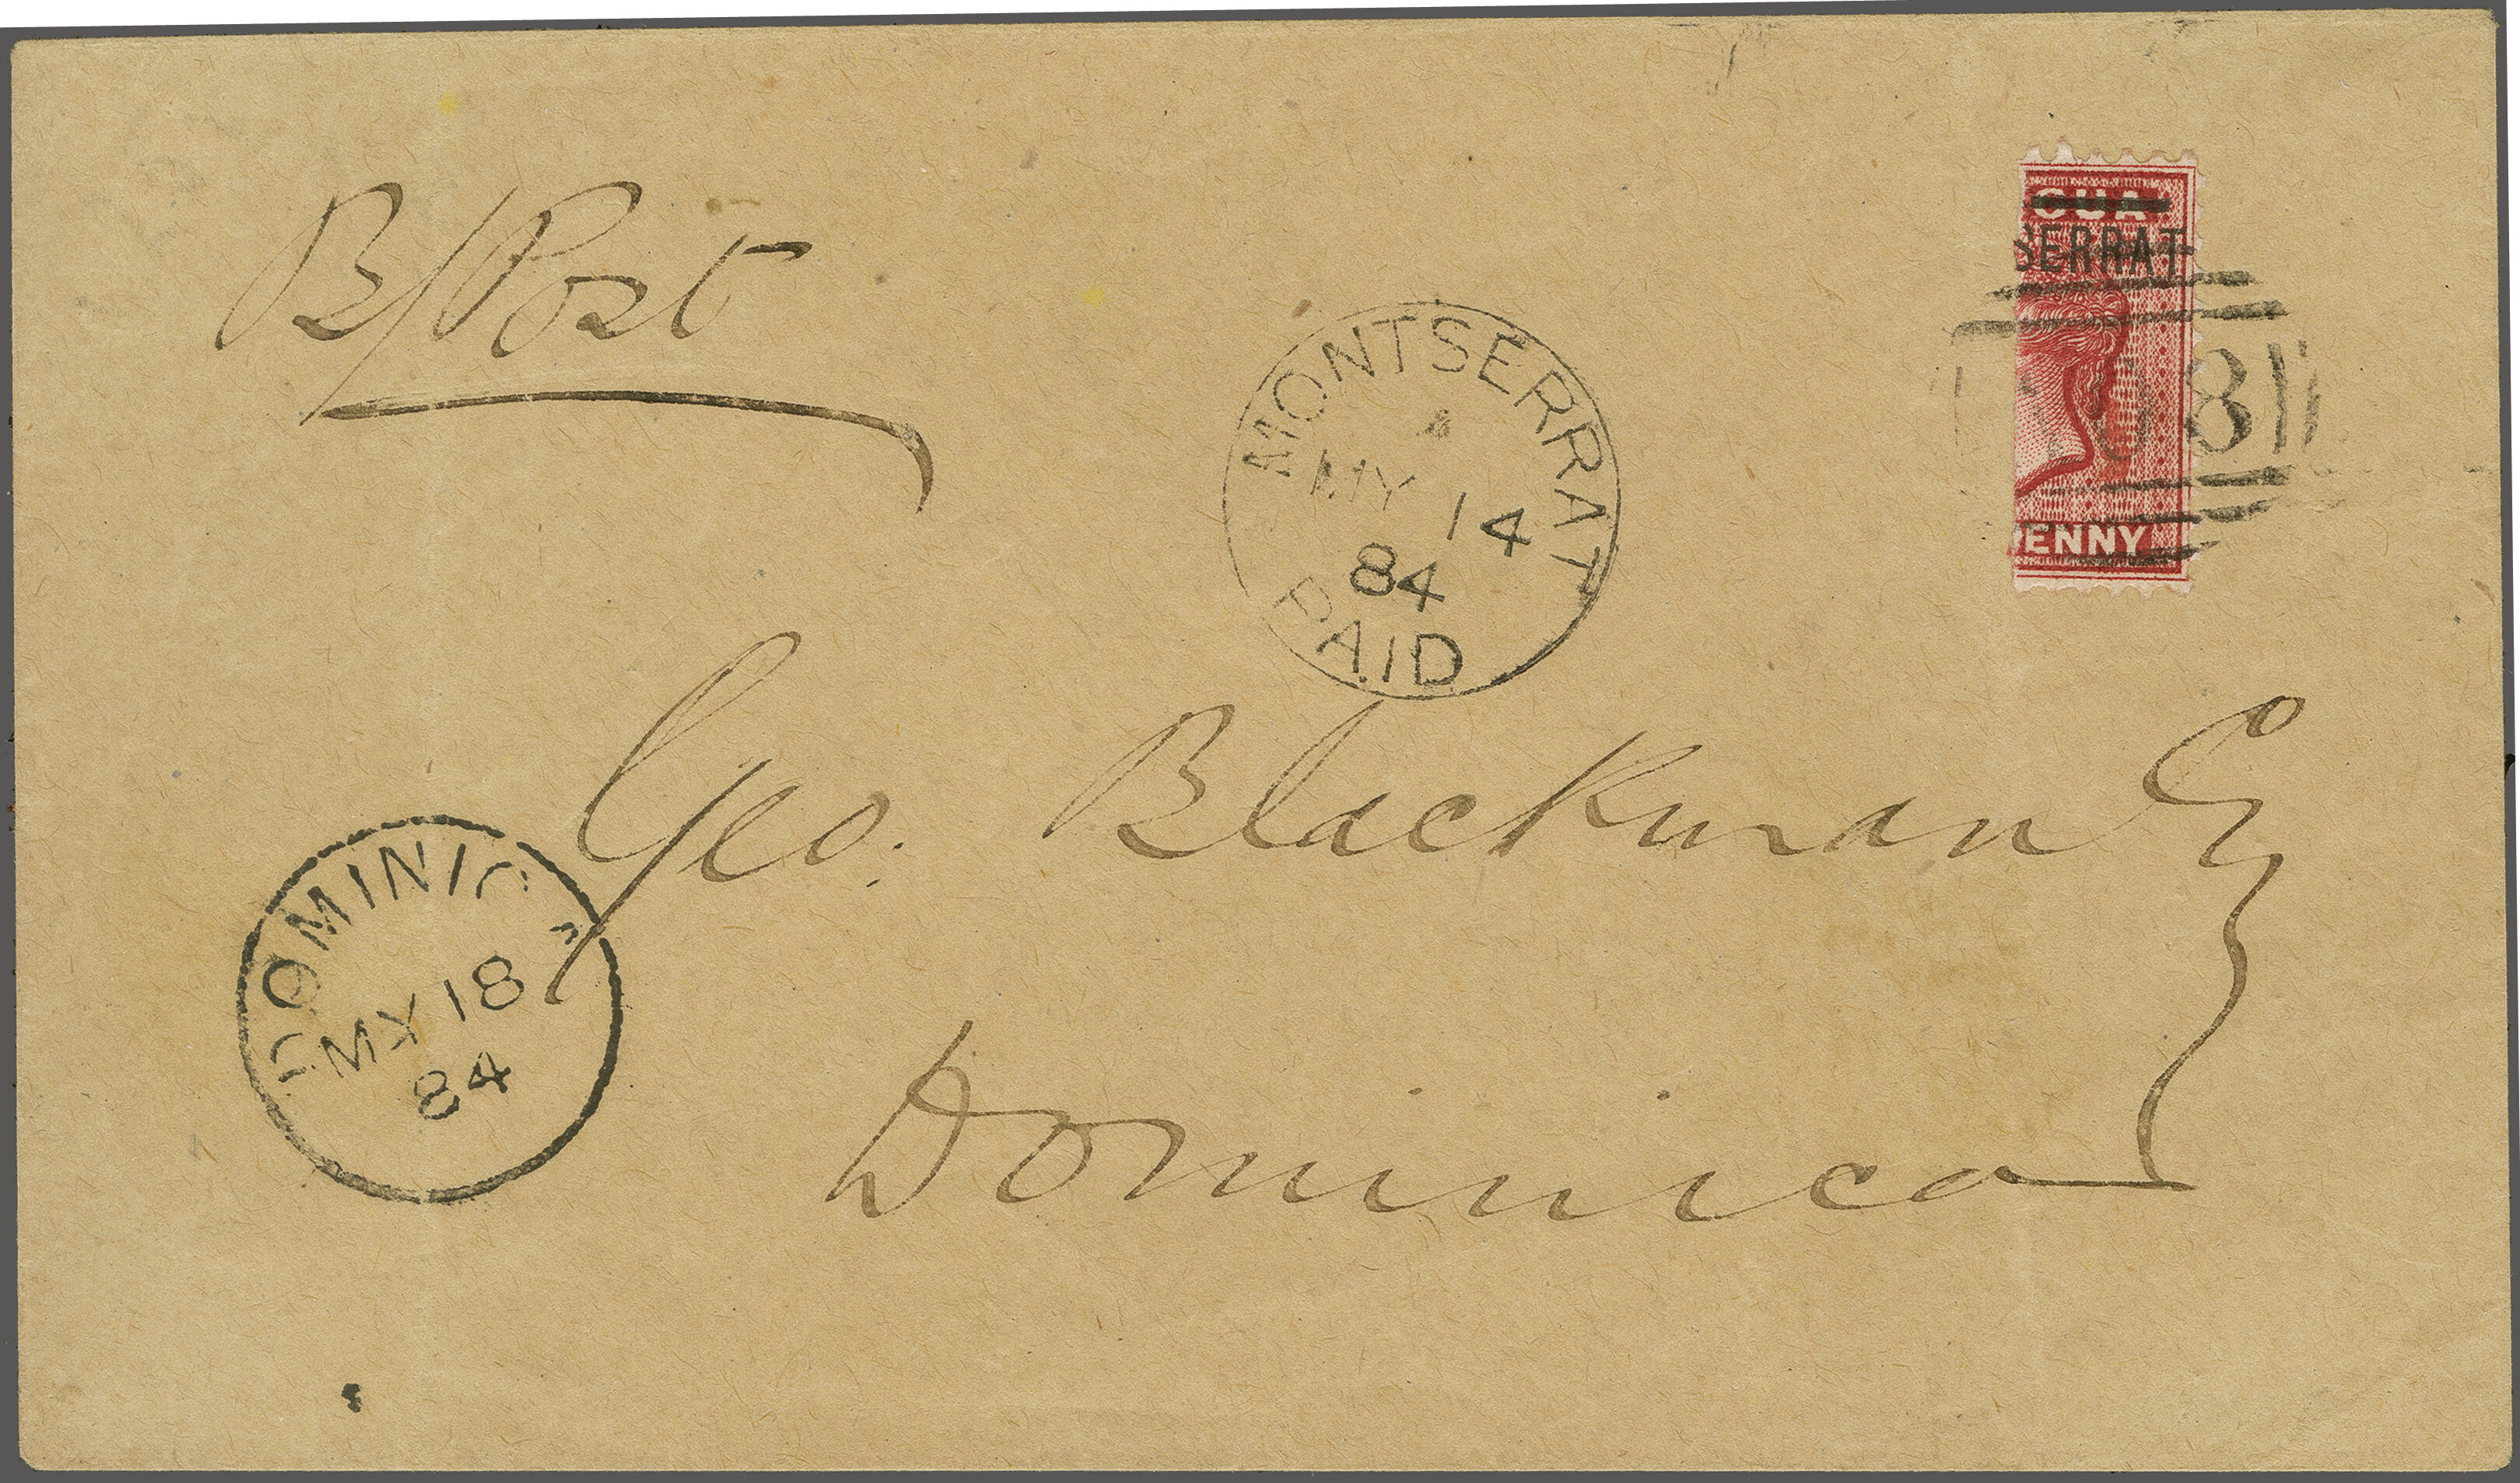 B/Post
GUA
SERRAT
A08
PENNY
MONTSERRAT
MY 14
84
PAID
Geo. Blackman Es
Dominica
DOMINICA
MY 18
84